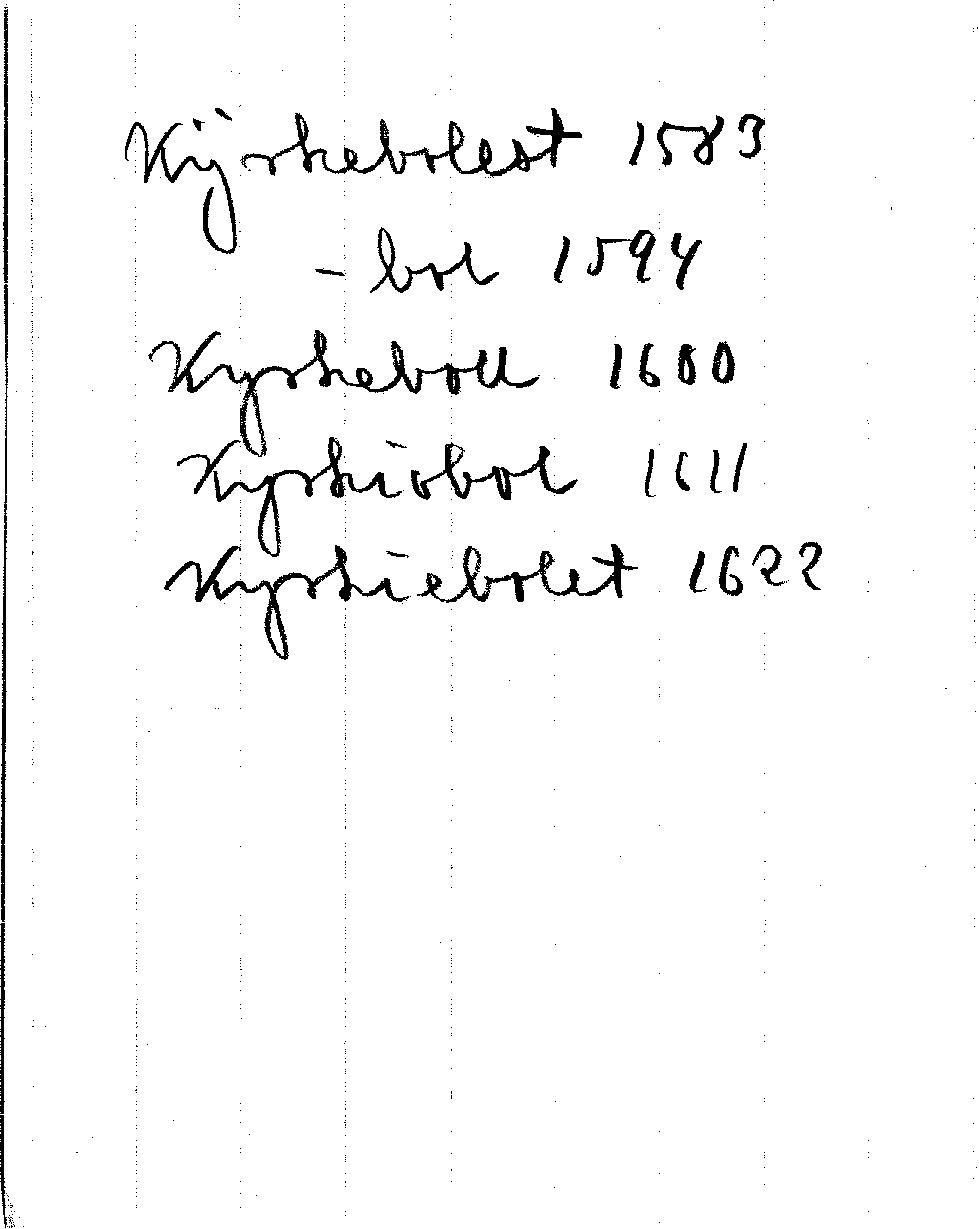 Kÿrkebolest 1583
- bol 1594
Kyrkeboll 1600
Kyrkiobol 1611
Kyrkiebolet 1622